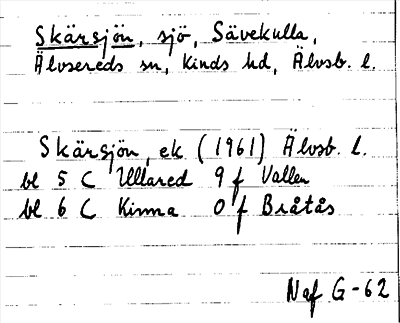 Skärsjön, sjö, Sävekulla,
Älvsereds sn, Kinds hd, Älvsb. l.
Skärsjön, ek (1961) Älvsb. l.
bl 5 C Ullared 9 f Vallen
bl 6 C Kinna 0 f Bråtås
Naf G-62